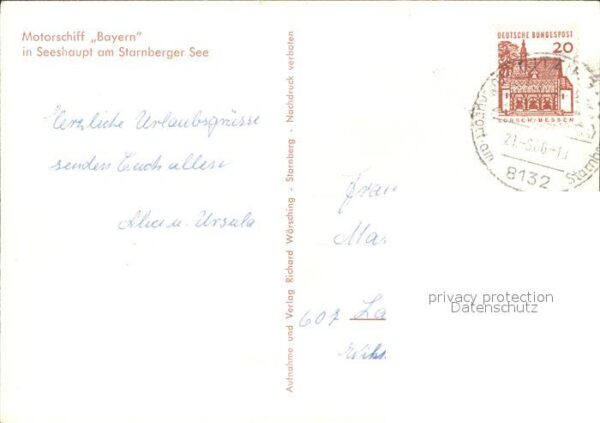 Motorschiff „Bayern"
in Seeshaupt am Starnberger See
Herzliche Urlaubsgrüsse
senden Euch allen
Alice u. Ursula
Aufnahme und Verlag Richard Wörsching - Starnberg - Nachdruck verboten
DEUTSCHE BUNDESPOST
20
LORSCH/HESSEN
8132
Frau
Ma
607 La
privacy protection
Datenschutz